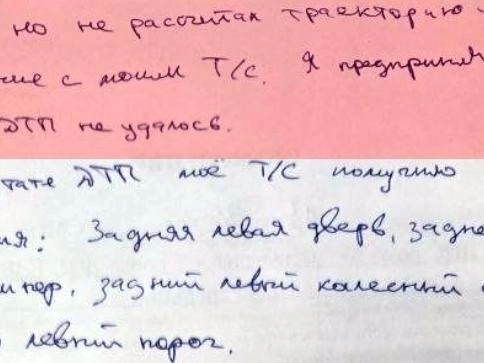 но не рассчитал траекторию
с моим Т/С. Я предпринял
ДТП не удалось.
тате ДТП моё Т/С получило
ия: Задняя левая дверь, задне
задний левый колесный
левый порог.